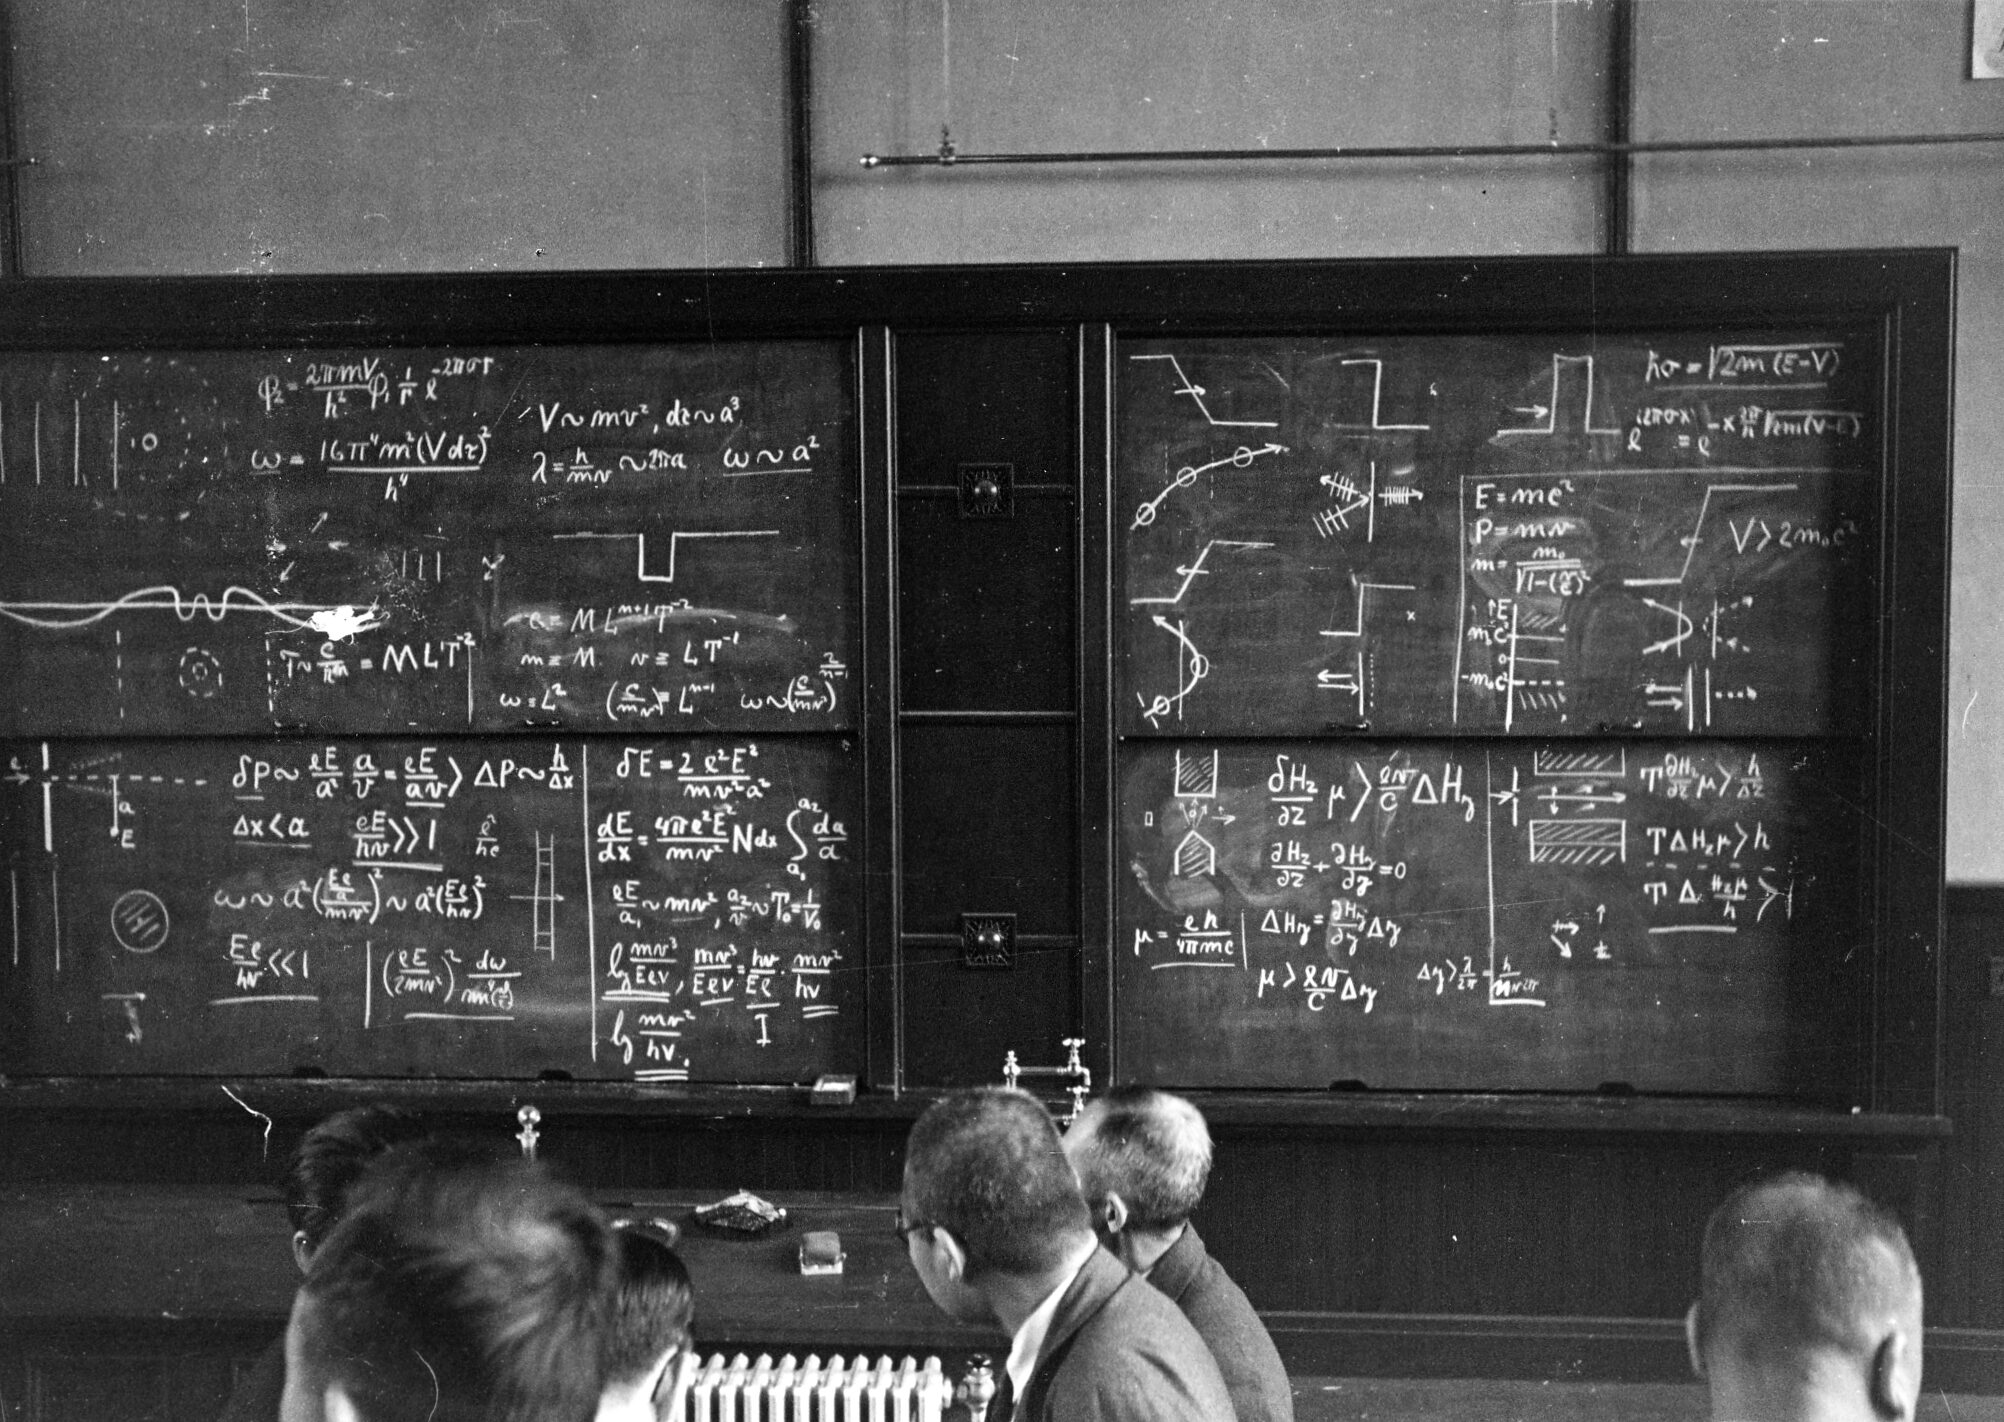 φ₂ = 2πmV/h² φ₁ 1/r e^(-2πσr)
ω = 16π⁴m²(Vdτ)²/h⁴
V ~ mv², dτ ~ a³
λ = h/mv ~ 2πa ω ~ a²
a = M L^(n+1) T⁻²
= M L T⁻²
m ≡ M v ≡ L T⁻¹
ω ≡ L² (c/mv²) ≡ L^(n-1) ω ~ (c/mv²)^(2/(n-1))
e
a
E
δp ~ eE/a² a/v = eE/av > Δp ~ h/Δx
Δx < a eE/hv >> 1
ω ~ a² (Ee/a / mv²)² ~ a² (Ee/hv)²
Ee/hv << 1
(eE/2mv²)² dω/sin⁴
δE = 2e²E²/mv²a²
dE/dx = 4πe²E²/mv² N dx ∫ a₁ a₂ da/a
eE/a₁ ~ mv², a₂/v ~ T₀ = 1/ν₀
lg mv³/Eeν, mv³/Eeν = hv/Ee · mv²/hν
I
lg mv²/hν.
hσ = √2m(E-V)
e^(i2πσx) = e^(-x 2π/h √2m(V-E))
E = mc²
P = mv
m = m₀/√1-(v/c)²
V > 2m₀c²
↑E
m₀c²
0
-m₀c²
∂H_z/∂z μ > ev/c ΔH_y
∂H_z/∂z + ∂H_y/∂y = 0
μ = eh/4πmc
ΔH_y = ∂H_y/∂y Δy
μ > ev/c Δy
Δy > λ/2π = h/mv2π
T ∂H_z/∂z μ > h/Δz
T ΔH_z μ > h
T Δ H_z μ/h > 1